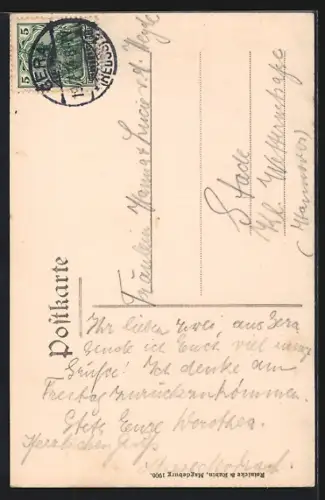 5 5
GERA
(REUSS)
Postkarte
Fräulein Hanna & Lucie v. d.
Stade
Kl.
(Hannover)
Ihr lieben zwei, aus Gera
sende ich Euch viel
Grüße! Ich denke am
Freitag zurückzukommen.
Stets Eure Dorothea.
Herzlichen Gruß
Reinicke & Rubin, Magdeburg 1906.